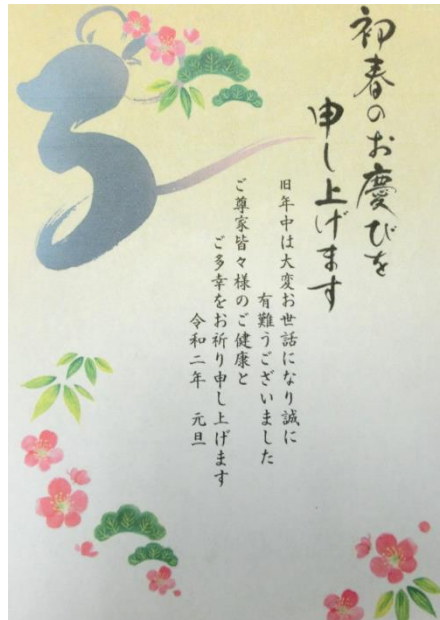 初春のお慶びを
申し上げます
旧年中は大変お世話になり誠に
有難うございました
ご尊家皆々様のご健康と
ご多幸をお祈り申し上げます
令和二年 元旦